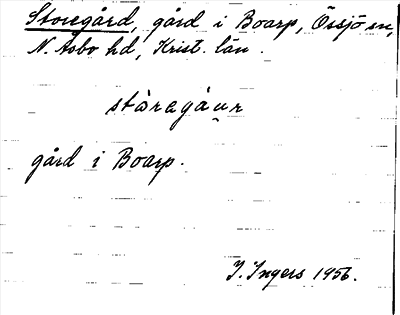 Storegård, gård i Boarp, Össjö sn,
N. Åsbo hd, Krist. län.
stàragáu̯r
gård i Boarp.
I. Ingers 1956.